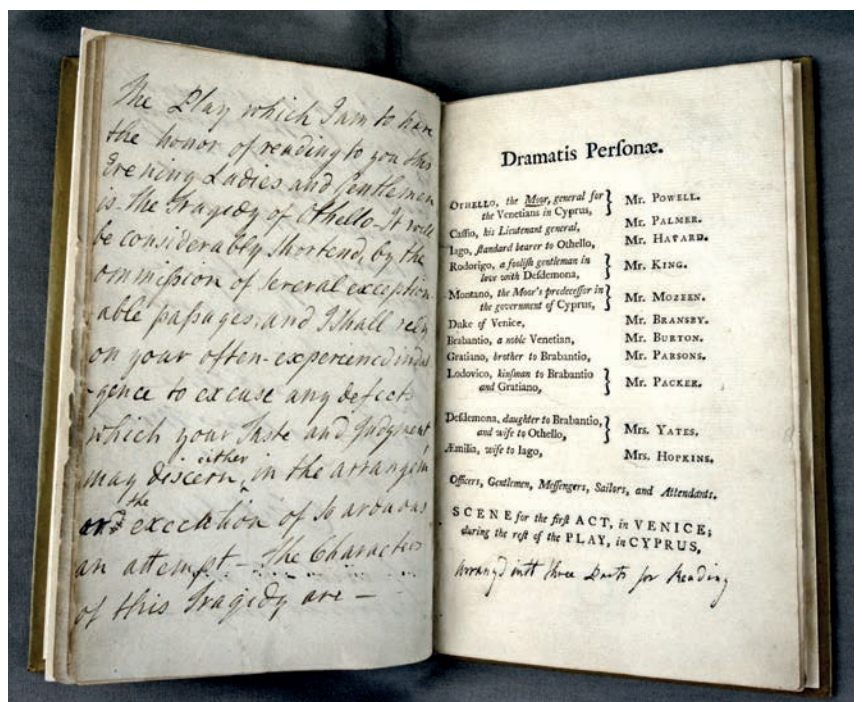 The Play which I am to have
the honor of reading to you this
Evening Ladies and Gentlemen
is the Tragedy of Othello - It will
be considerably shortend, by the
ommission of several exception
able paſsages, and I shall rely
on your often-experienced indul
-gence to excuse any defects
which your Taste and Judgment
may discern either in the arrangem
and the execution of so arduous
an attempt - The Characters
of this Tragedy are -
Dramatis Perſonæ.
OTHELLO, the Moor, general for } Mr. POWELL.
the Venetians in Cyprus,
Caſſio, his Lieutenant general, Mr. PALMER.
Iago, ſtandard bearer to Othello, Mr. HAVARD.
Rodorigo, a fooliſh gentleman in } Mr. KING.
love with Deſdemona,
Montano, the Moor's predeceſſor in } Mr. MOZEEN.
the government of Cyprus,
Duke of Venice, Mr. BRANSBY.
Brabantio, a noble Venetian, Mr. BURTON.
Gratiano, brother to Brabantio, Mr. PARSONS.
Lodovico, kinſman to Brabantio } Mr. PACKER.
and Gratiano,
Deſdemona, daughter to Brabantio, } Mrs. YATES.
and wife to Othello,
Æmilia, wife to Iago, Mrs. HOPKINS.
Officers, Gentlemen, Meſſengers, Sailors, and Attendants.
SCENE for the firſt ACT, in VENICE;
during the reſt of the PLAY, in CYPRUS.
Arrang'd into three Parts for Reading